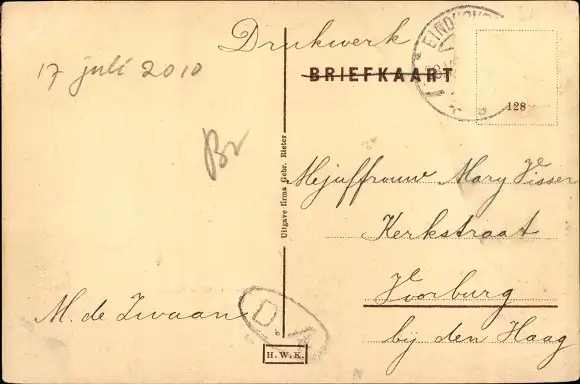 Drukwerk
BRIEFKAART
EINDHOVEN
128
17 juli 2010
Br
Uitgave firma Gebr. Rieter
Mejuffrouw Mary Visser
Kerkstraat
Voorburg
bij den Haag
M. de Zwaan
D
H. W. K.